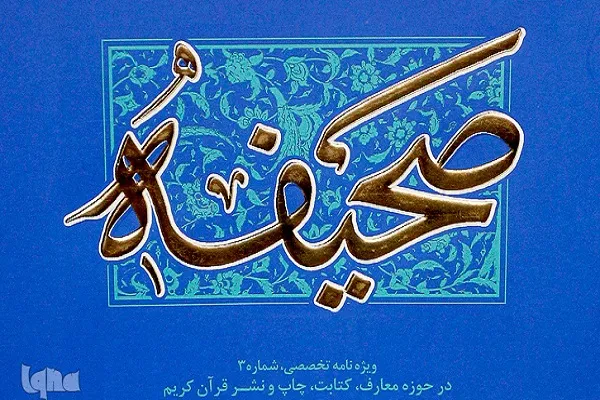 صحیفه
ویژه نامه تخصصی، شماره ۳
در حوزه معارف، کتابت، چاپ و نشر قرآن کریم
iqna